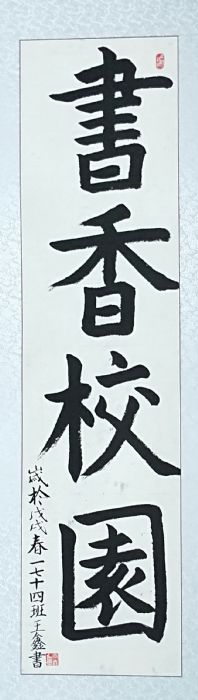 書香校園
歲於戊戌春一七十四班王鑫書